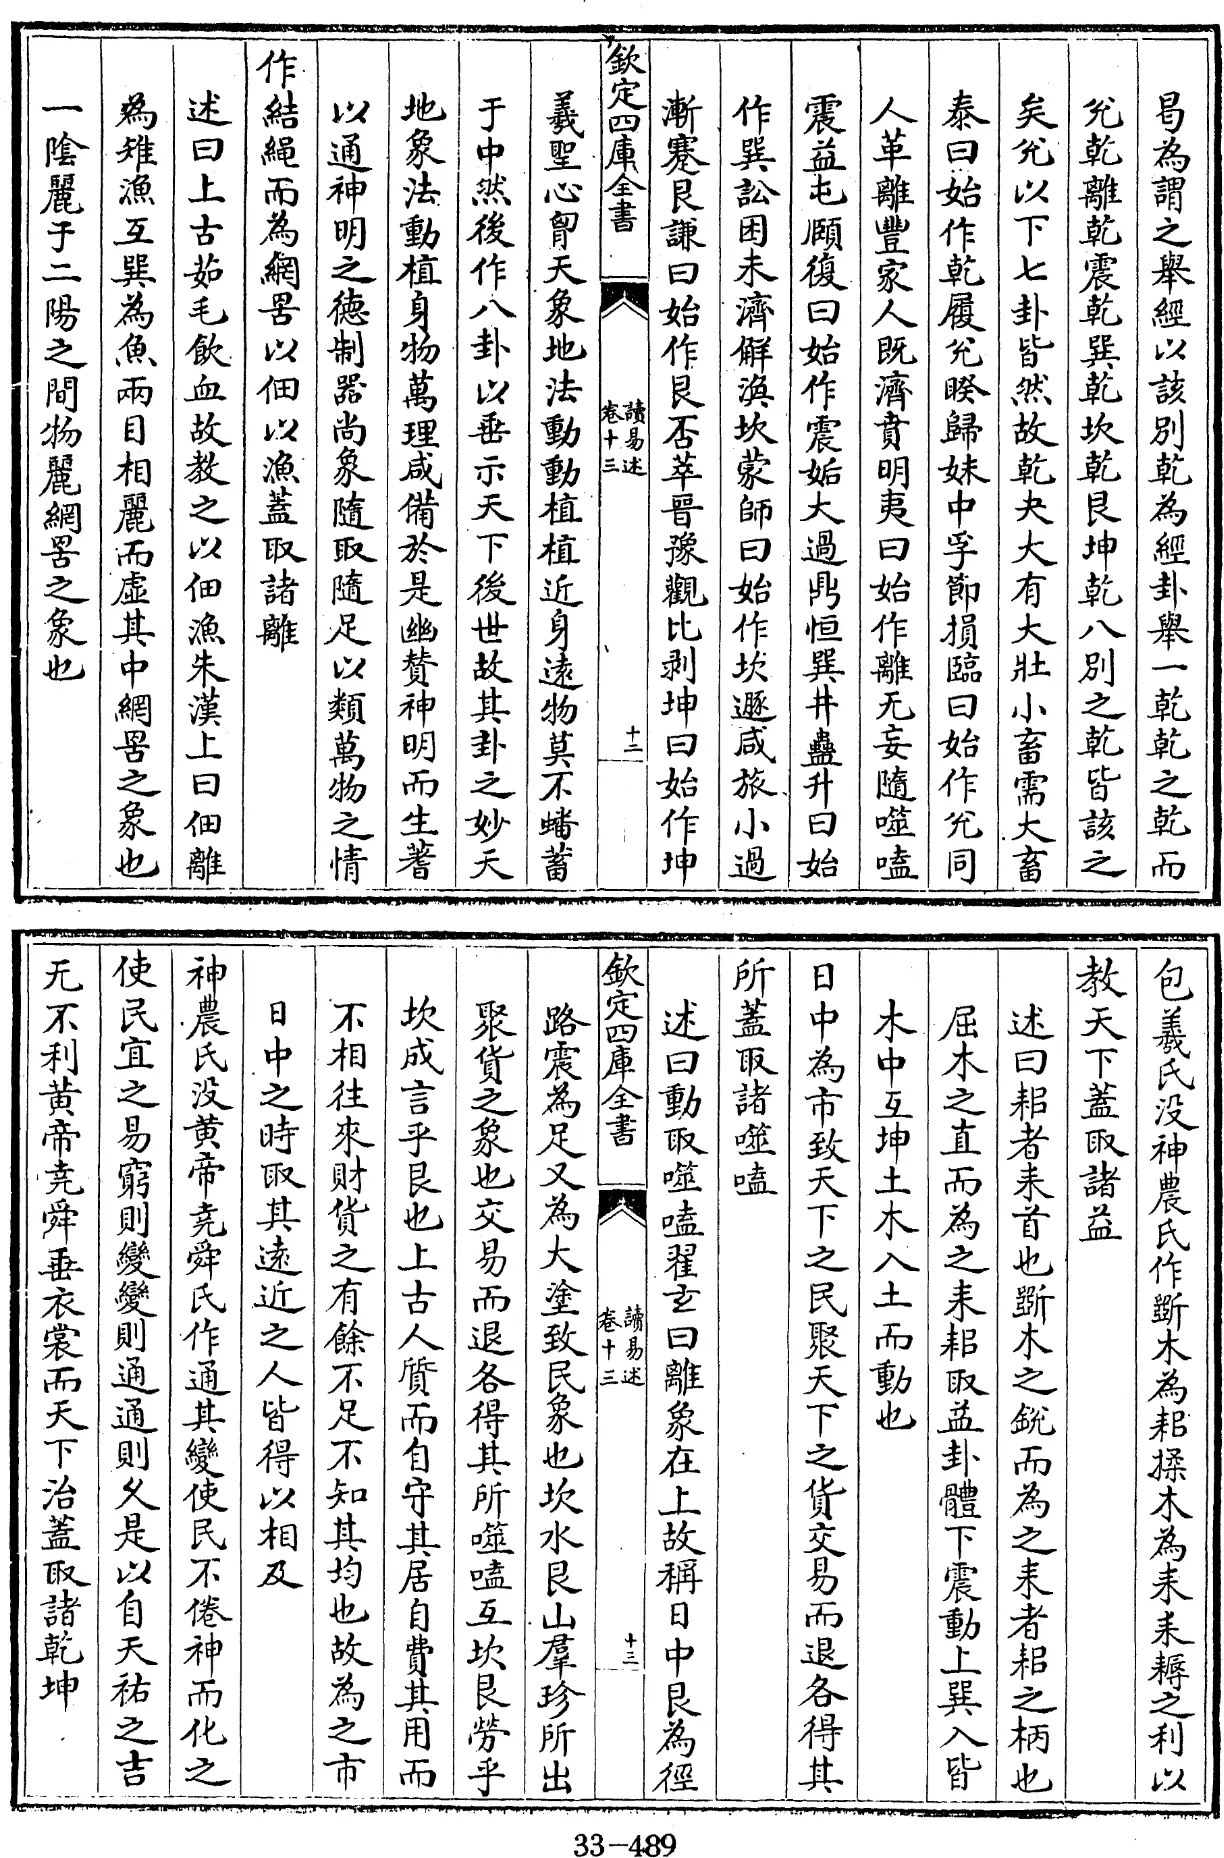 曷為謂之舉經以該別乾為經卦舉一乾乾之乾而
兊乾離乾震乾巽乾坎乾艮坤乾八別之乾皆該之
矣兊以下七卦皆然故乾夬大有大壯小畜需大畜
泰曰始作乾履兊睽歸妹中孚節損臨曰始作兊同
人革離豐家人既濟賁明夷曰始作離无妄隨噬嗑
震益屯頤復曰始作震姤大過鼎恒巽井蠱升曰始
作巽訟困未濟解渙坎蒙師曰始作坎遯咸旅小過
漸蹇艮謙曰始作艮否萃晉豫觀比剥坤曰始作坤
欽定四庫全書
讀易述
卷十三
十二
羲聖心胷天象地法動動植植近身逺物莫不蟠蓄
于中然後作八卦以垂示天下後世故其卦之妙天
地象法動植身物萬理咸備於是幽贊神明而生蓍
以通神明之德制器尚象隨取隨足以類萬物之情
作結繩而為網罟以佃以漁蓋取諸離
述曰上古茹毛飲血故教之以佃漁朱漢上曰佃離
為雉漁互巽為魚兩目相麗而虛其中網罟之象也
一陰麗于二陽之間物麗網罟之象也
包羲氏没神農氏作斵木為耜揉木為耒耒耨之利以
教天下蓋取諸益
述曰耜者耒首也斵木之銳而為之耒者耜之柄也
屈木之直而為之耒耜取益卦體下震動上巽入皆
木中互坤土木入土而動也
日中為市致天下之民聚天下之貨交易而退各得其
所蓋取諸噬嗑
述曰動取噬嗑翟玄曰離象在上故稱日中艮為徑
欽定四庫全書
讀易述
卷十三
十三
路震為足又為大塗致民象也坎水艮山羣珍所出
聚貨之象也交易而退各得其所噬嗑互坎艮勞乎
坎成言乎艮也上古人質而自守其居自費其用而
不相往來財貨之有餘不足不知其均也故為之市
日中之時取其逺近之人皆得以相及
神農氏没黄帝堯舜氏作通其變使民不倦神而化之
使民宜之易窮則變變則通通則久是以自天祐之吉
无不利黄帝堯舜垂衣裳而天下治蓋取諸乾坤
33-489